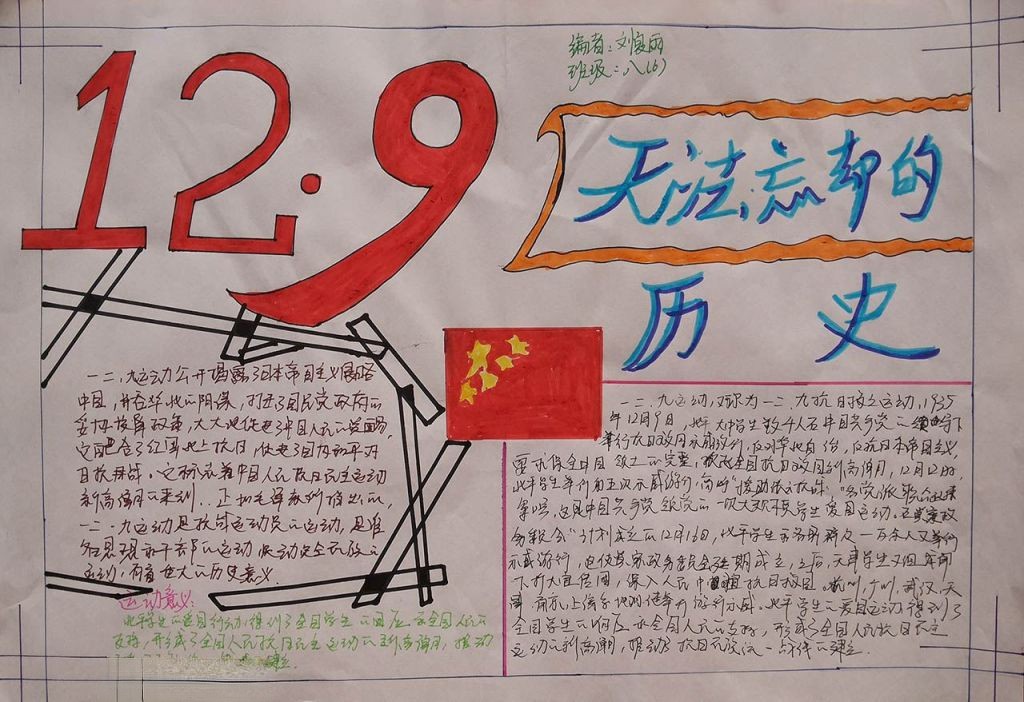 12.9
编者:刘俊丽
班级:八(6)
无法忘却的
历 史
一二·九运动公开揭露了日本帝国主义侵略
中国,并吞华北的阴谋,打击了国民党政府的
妥协投降政策,大大地促进了中国人民的觉醒。
它配合了红军北上抗日,促进了国内和平和对
日抗战。它标志着中国人民抗日民主运动
新高潮的来到。正如毛泽东所指出的,
一二·九运动是抗战运动的运动,是准
备思想和干部的运动,是动员全民族的
运动,有着重大的历史意义。
运动意义:
北平学生的爱国行动,得到了全国学生的响应和全国人民的
支持,形成了全国人民抗日民主运动的新高潮,推动
建立
一二·九运动,又称为一二·九抗日救亡运动,1935
年12月9日,北平大中学生数千人在中国共产党的领导下
举行抗日救国示威游行,反对华北自治,反抗日本帝国主义,
要求保全中国领土的完整,掀起全国抗日救国新高潮,12月12日
北平学生举行第五次示威游行,高呼"援助绥远抗战"、"各党派联合起来
等口号,这是中国共产党领导的一次大规模学生爱国运动。
务委员会"计划成立的12月16日,北平学生和各界群众一万余人又举行
示威游行,迫使冀察政务委员会延期成立,之后,天津学生又组
下扩大宣传团,深入人民中 抗日救国。杭州,广州,武汉,天
津,南京,上海等地相继举行游行示威。北平学生的爱国运动得到了
全国学生的响应和全国人民的支持,形成了全国人民抗日民主
运动的新高潮,推动了抗日民族统一战线的建立。